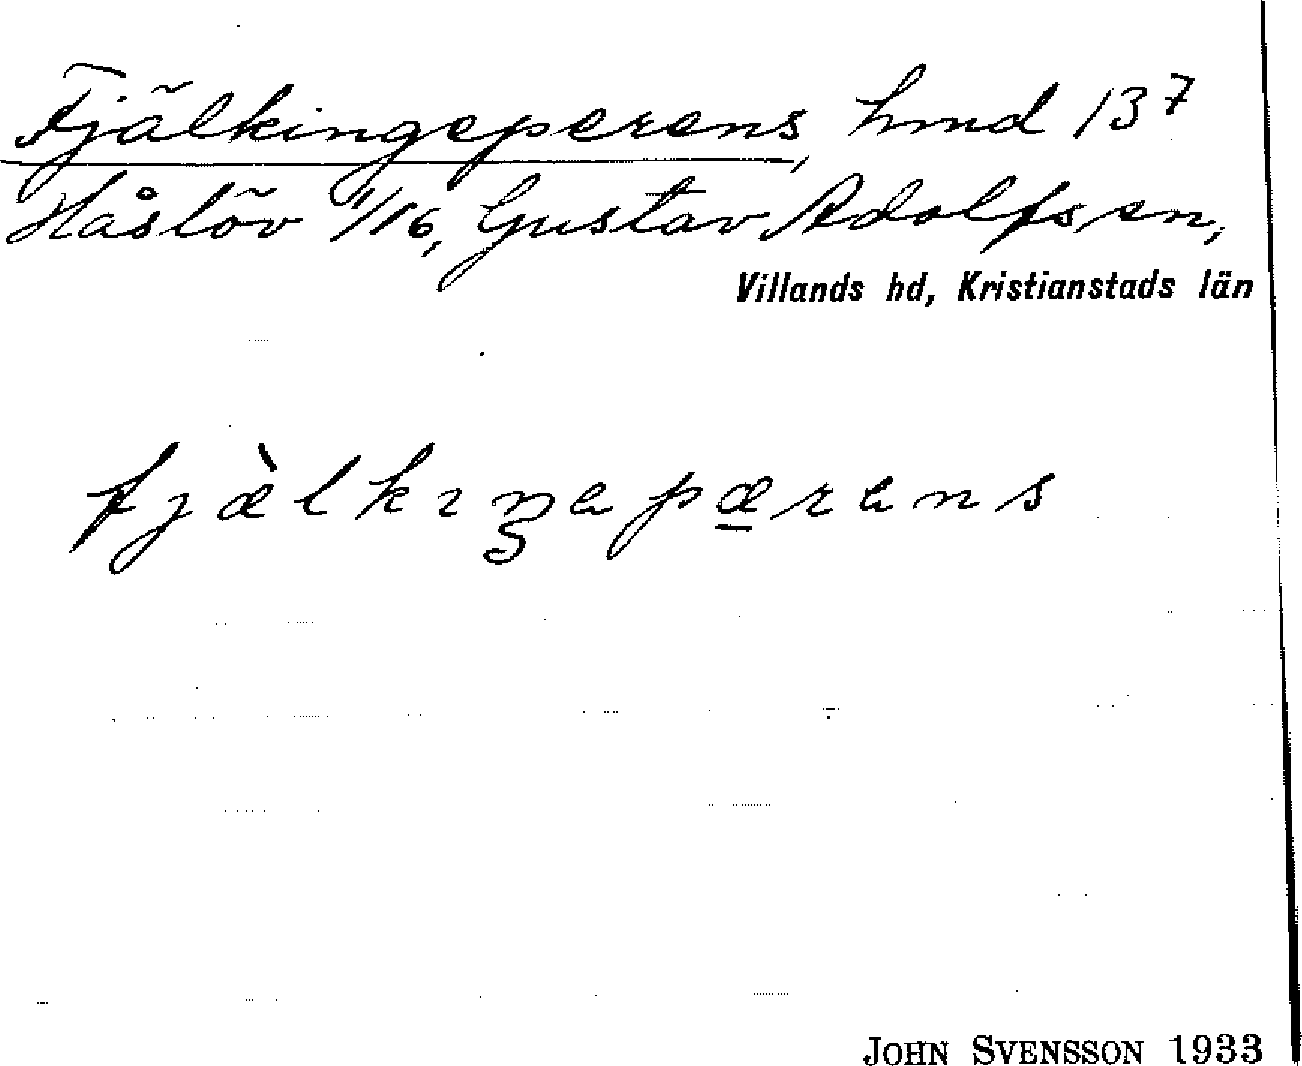 Fjälkingeperens, hmd 13⁷
Håslöv 1/16, Gustav Adolfs sn,
Villands hd, Kristianstads län
fjæ̀lkıŋapæ̱rens
JOHN SVENSSON 1933